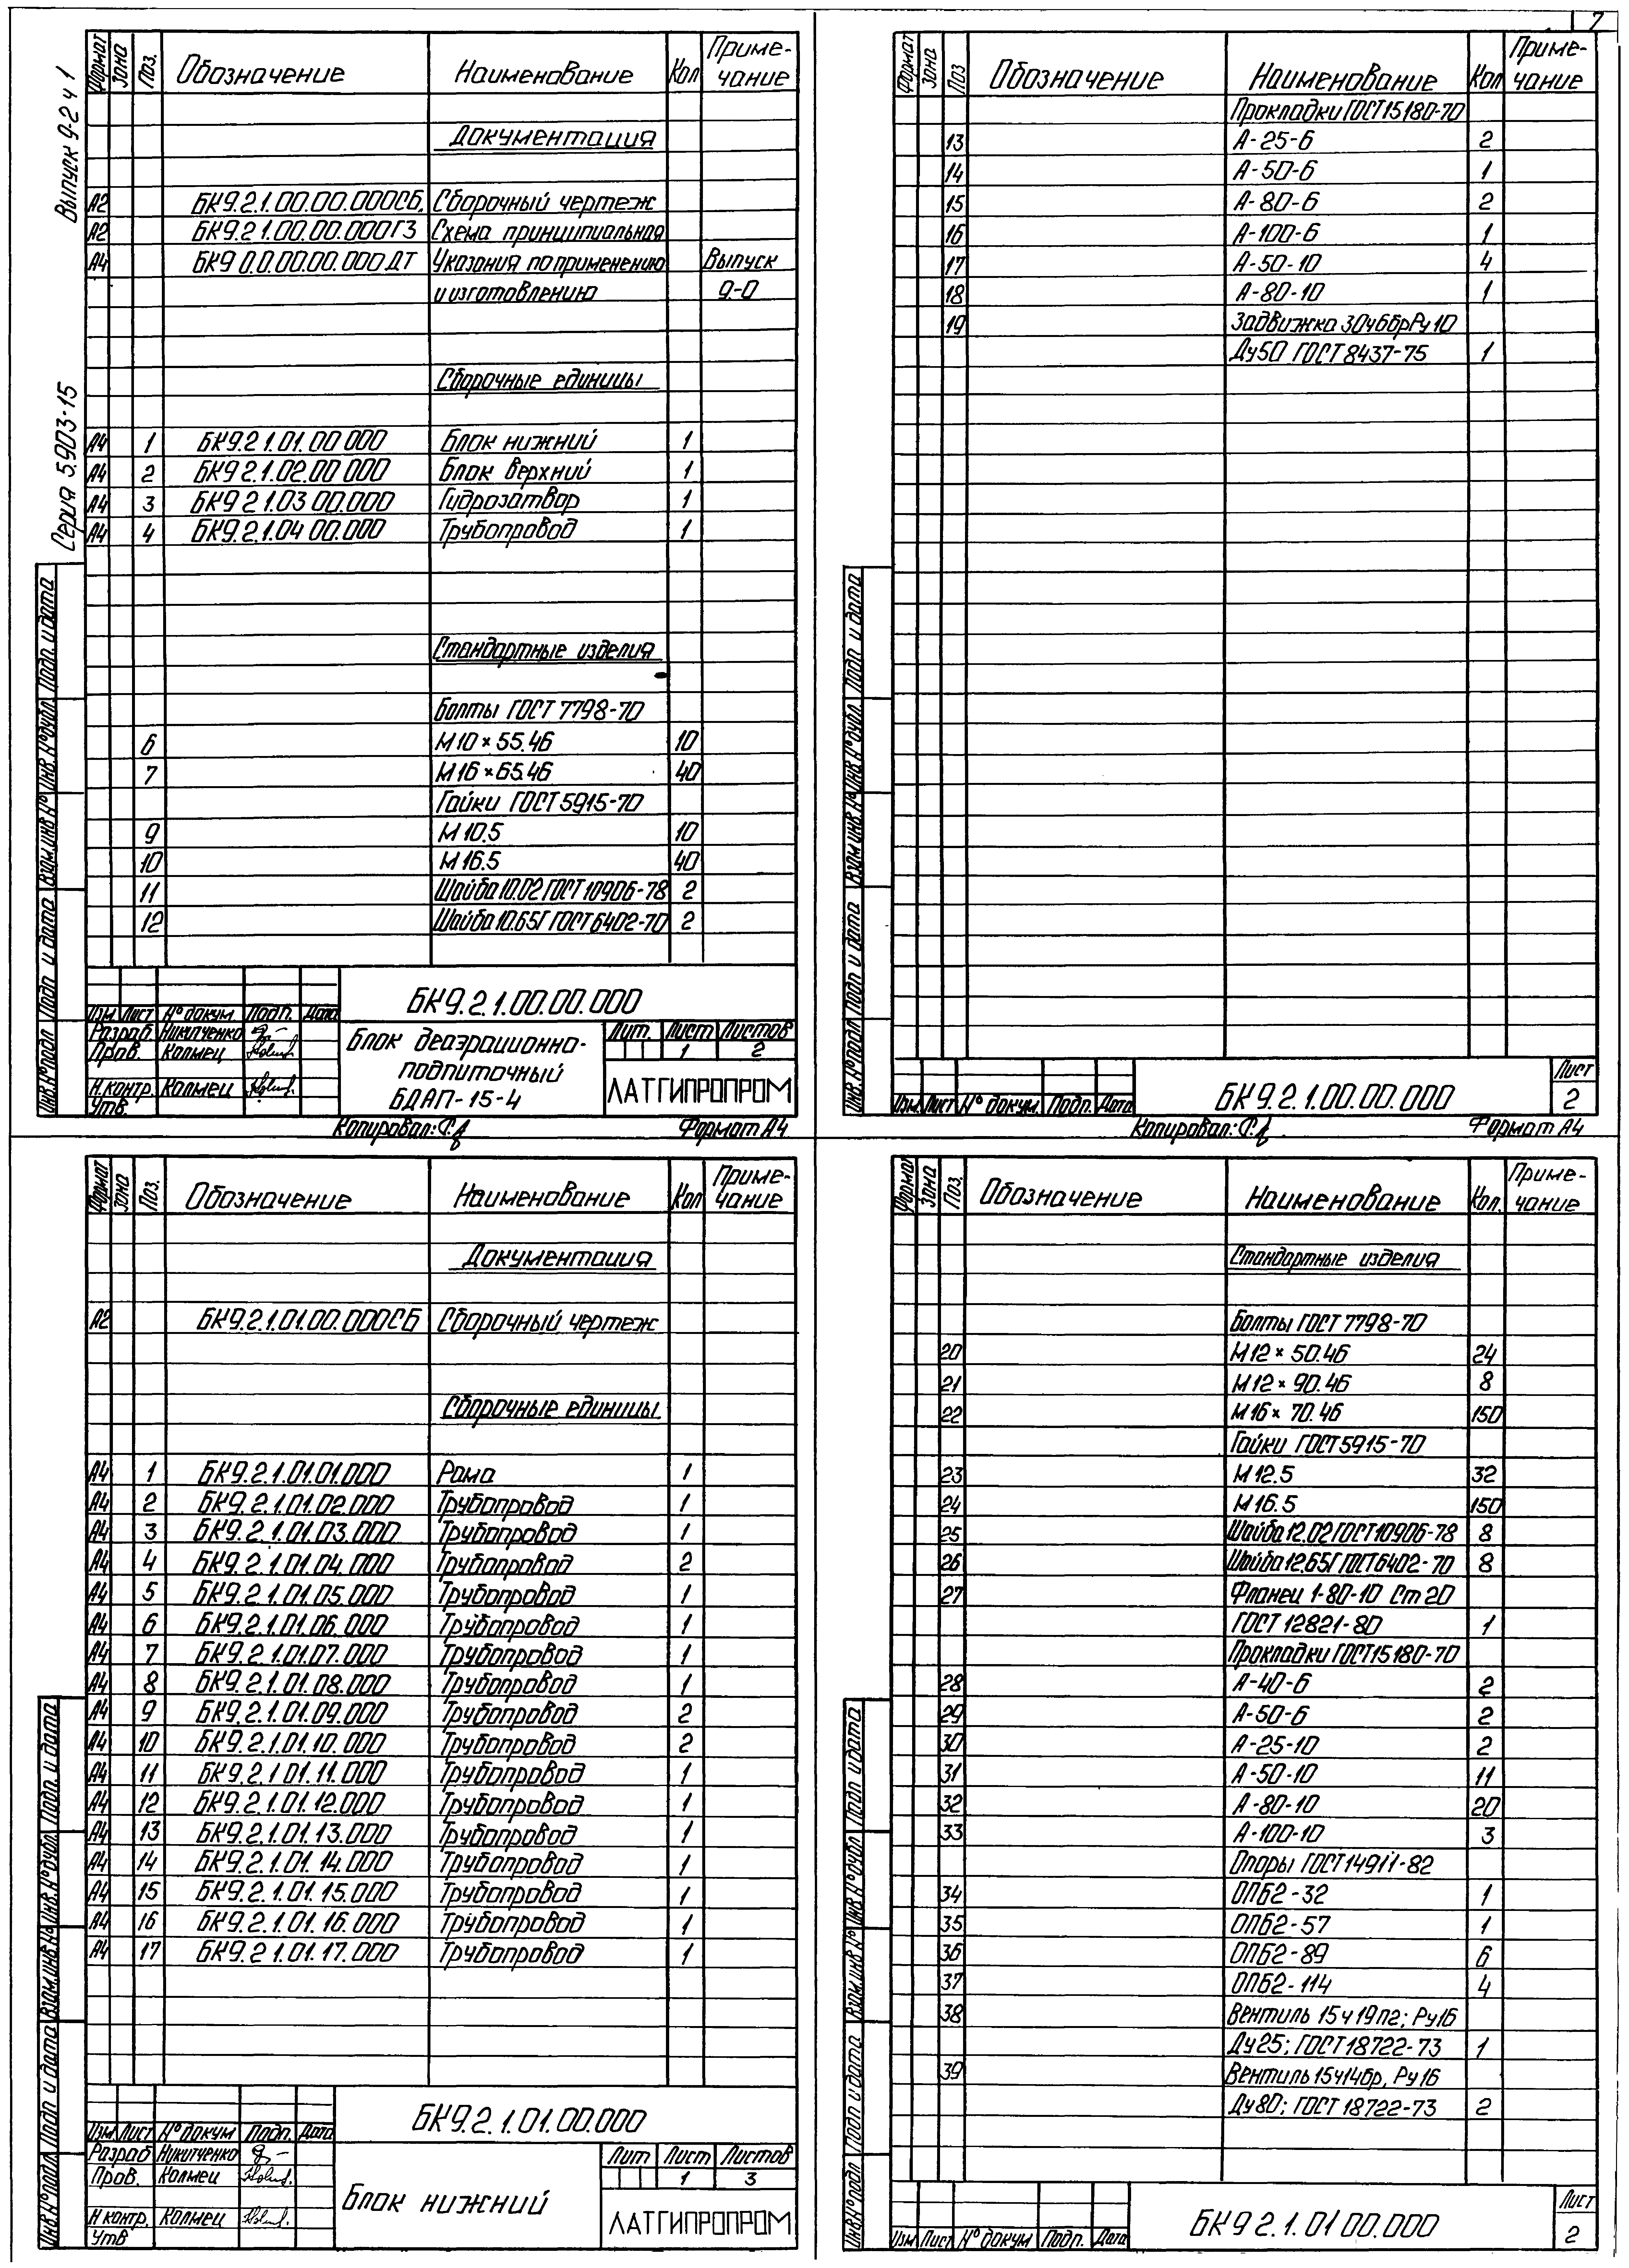 7
Выпуск 9-2 ч 1
Серия 5.903-15
Формат Зона Поз. Обозначение Наименование Кол Приме-
чание
Документация
А2 БК9.2.1.00.00.000СБ. Сборочный чертеж
А2 БК9.2 1.00.00.000Г3 Схема принципиальная
А4 БК9 0.0.00.00.000 ДТ Указания по применению Выпуск
и изготовлению 9-0
Сборочные единицы
А4 1 БК9.2.1.01.00.000 Блок нижний 1
А4 2 БК9 2.1.02.00 000 Блок верхний 1
А4 3 БК9 2 1.03 00.000 Гидрозатвор 1
А4 4 БК9.2.1.04 00.000 Трубопровод 1
Стандартные изделия
Болты ГОСТ 7798-70
6 М10 × 55.46 10
7 М16 × 65.46 40
Гайки ГОСТ 5915-70
9 М 10.5 10
10 М 16.5 40
11 Шайба 10.02 ГОСТ 10906-78 2
12 Шайба 10.65Г ГОСТ 6402-70 2
Инв.№подл Подп и дата Взам.инв № Инв.№дубл. Подп. и дата
БК9.2.1.00.00.000
Изм Лист № докум Подп. Дата
Разраб. Никитченко
Пров. Колмец
Н.контр. Колмец
Утв.
Блок деаэрационно-
подпиточный
БДАП-15-4
Лит. Лист Листов
1 2
ЛАТГИПРОПРОМ
Копировал: Формат А4
Формат Зона Поз Обозначение Наименование Кол Приме-
чание
Прокладки ГОСТ 15180-70
13 А-25-6 2
14 А-50-6 1
15 А-80-6 2
16 А-100-6 1
17 А-50-10 4
18 А-80-10 1
19 Задвижка 30ч6брРу10
Ду50 ГОСТ 8437-75 1
Инв.№подл Подп и дата Взам.инв № Инв №дубл. Подп и дата
Изм. Лист № докум. Подп. Дата
БК9.2.1.00.00.000
Лист
2
Копировал: Формат А4
Формат Зона Поз. Обозначение Наименование Кол Приме-
чание
Документация
А2 БК9.2.1.01.00.000СБ Сборочный чертеж
Сборочные единицы
А4 1 БК9.2.1.01.01.000 Рама 1
А4 2 БК9.2.1.01.02.000 Трубопровод 1
А4 3 БК9.2 1.01.03.000 Трубопровод 1
А4 4 БК9.2.1.01.04.000 Трубопровод 2
А4 5 БК9.2.1.01.05.000 Трубопровод 1
А4 6 БК9.2.1.01.06.000 Трубопровод 1
А4 7 БК9.2 1.01.07.000 Трубопровод 1
А4 8 БК9.2.1.01.08.000 Трубопровод 1
А4 9 БК9.2.1.01.09.000 Трубопровод 2
А4 10 БК9.2.1.01.10.000 Трубопровод 2
А4 11 БК9.2.1 01.11.000 Трубопровод 1
А4 12 БК9.2.1.01.12.000 Трубопровод 1
А4 13 БК9.2.1.01.13.000 Трубопровод 1
А4 14 БК9.2.1.01.14.000 Трубопровод 1
А4 15 БК9.2.1.01.15.000 Трубопровод 1
А4 16 БК9.2.1.01.16.000 Трубопровод 1
А4 17 БК9.2 1.01.17.000 Трубопровод 1
Инв.№подл. Подп и дата Взам.инв.№ Инв.№дубл. Подп. и дата
БК9.2.1.01.00.000
Изм. Лист № докум Подп. Дата
Разраб Никитченко
Пров. Колмец
Н контр. Колмец
Утв
Блок нижний
Лит Лист Листов
1 3
ЛАТГИПРОПРОМ
Формат Зона Поз. Обозначение Наименование Кол. Приме-
чание
Стандартные изделия
Болты ГОСТ 7798-70
20 М12 × 50.46 24
21 М12 × 90.46 8
22 М16 × 70.46 150
Гайки ГОСТ 5915-70
23 М 12.5 32
24 М 16.5 150
25 Шайба 12.02 ГОСТ 10906-78 8
26 Шайба 12.65Г ГОСТ 6402-70 8
27 Фланец 1-80-10 Ст 20
ГОСТ 12821-80 1
Прокладки ГОСТ 15180-70
28 А-40-6 2
29 А-50-6 2
30 А-25-10 2
31 А-50-10 11
32 А-80-10 20
33 А-100-10 3
Опоры ГОСТ 14911-82
34 ОПБ2-32 1
35 ОПБ2-57 1
36 ОПБ2-89 6
37 ОПБ2-114 4
38 Вентиль 15 ч 19п2; Ру16
Ду25; ГОСТ 18722-73 1
39 Вентиль 15ч14бр, Ру16
Ду80; ГОСТ 18722-73 2
Инв.№подл Подп и дата Взам.инв № Инв №дубл Подп и дата
Изм Лист № докум Подп. Дата
БК9 2.1.01 00.000
Лист
2